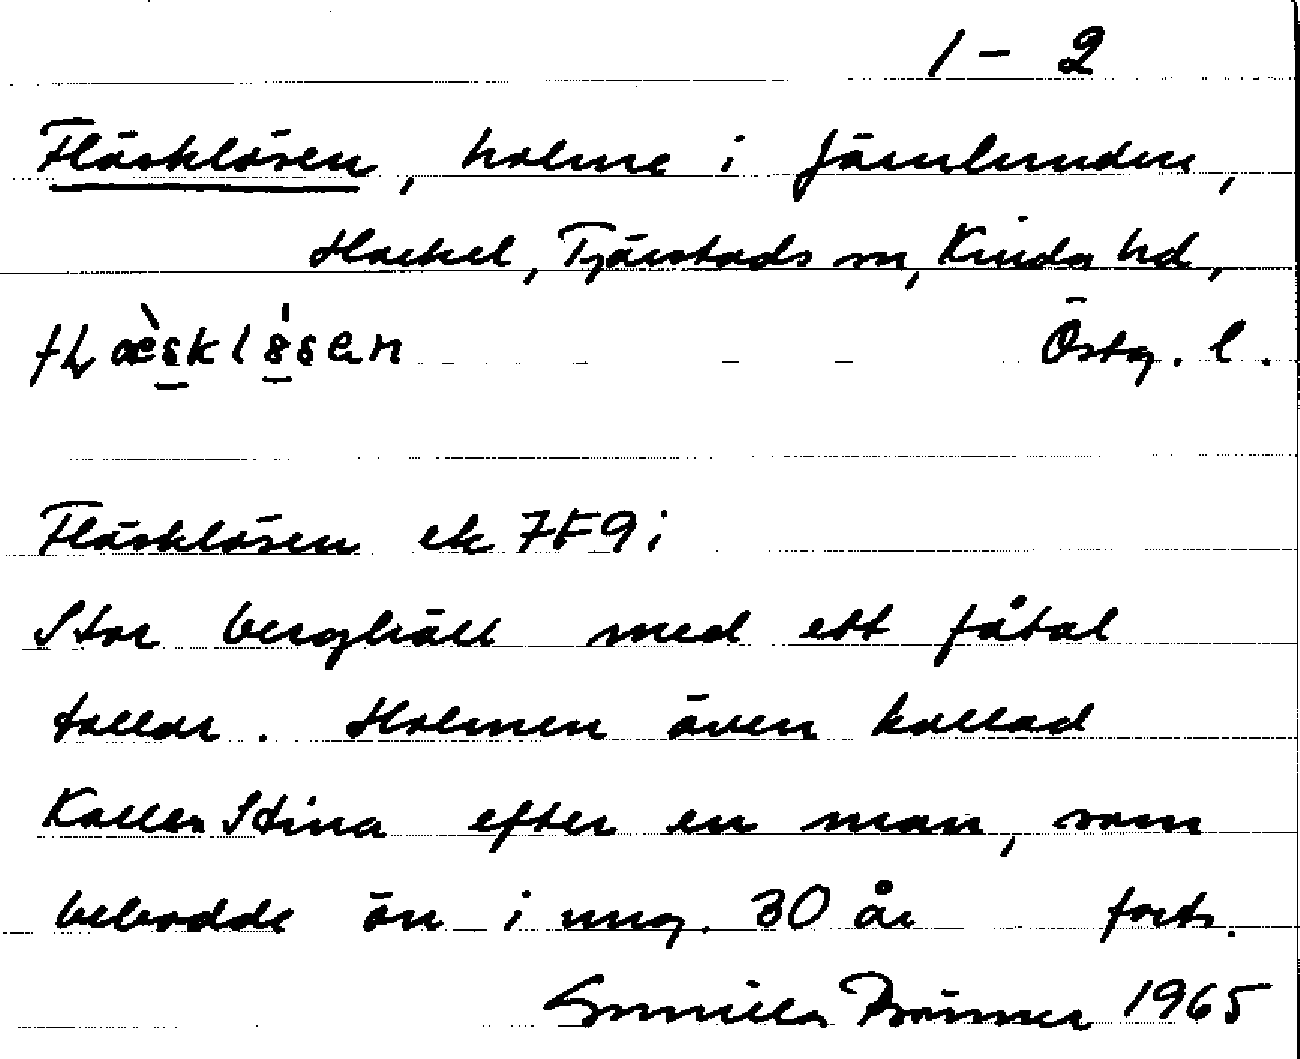 1 - 2
Fläsklösen, holme i Järnlunden,
Hackel, Tjärstads sn, Kinda hd,
Östg. l.
Fläsklösen ek 7F9i
Stor berghäll med ett fåtal
tallar. Holmen även kallad
Kallen Stina efter en man, som
bebodde ön i ung. 30 år forts.
Gunilla 1965